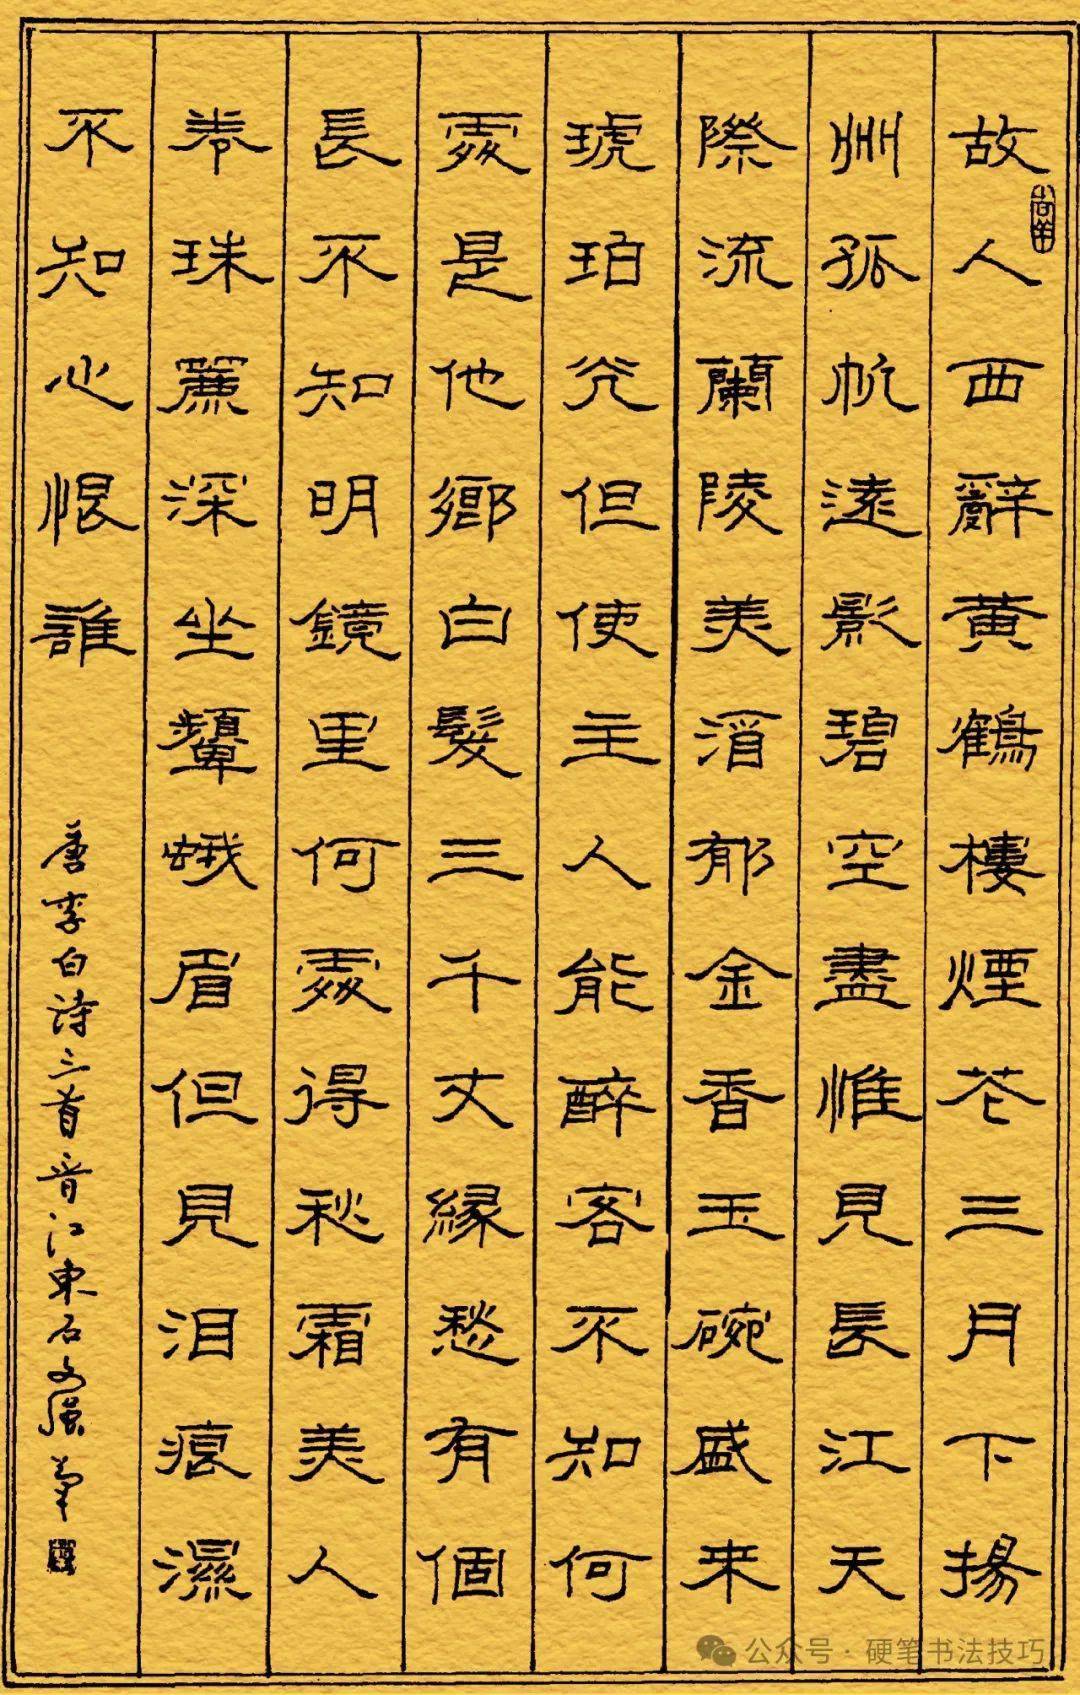 故人西辭黄鶴樓煙花三月下揚
州孤帆遠影碧空盡惟見長江天
際流蘭陵美酒郁金香玉碗盛来
琥珀光但使主人能醉客不知何
處是他鄉白髮三千丈緣愁有個
長不知明鏡里何處得秋霜美人
卷珠簾深坐顰蛾眉但見泪痕濕
不知心恨誰
唐李白诗三首晋江東石文
公众号·硬笔书法技巧